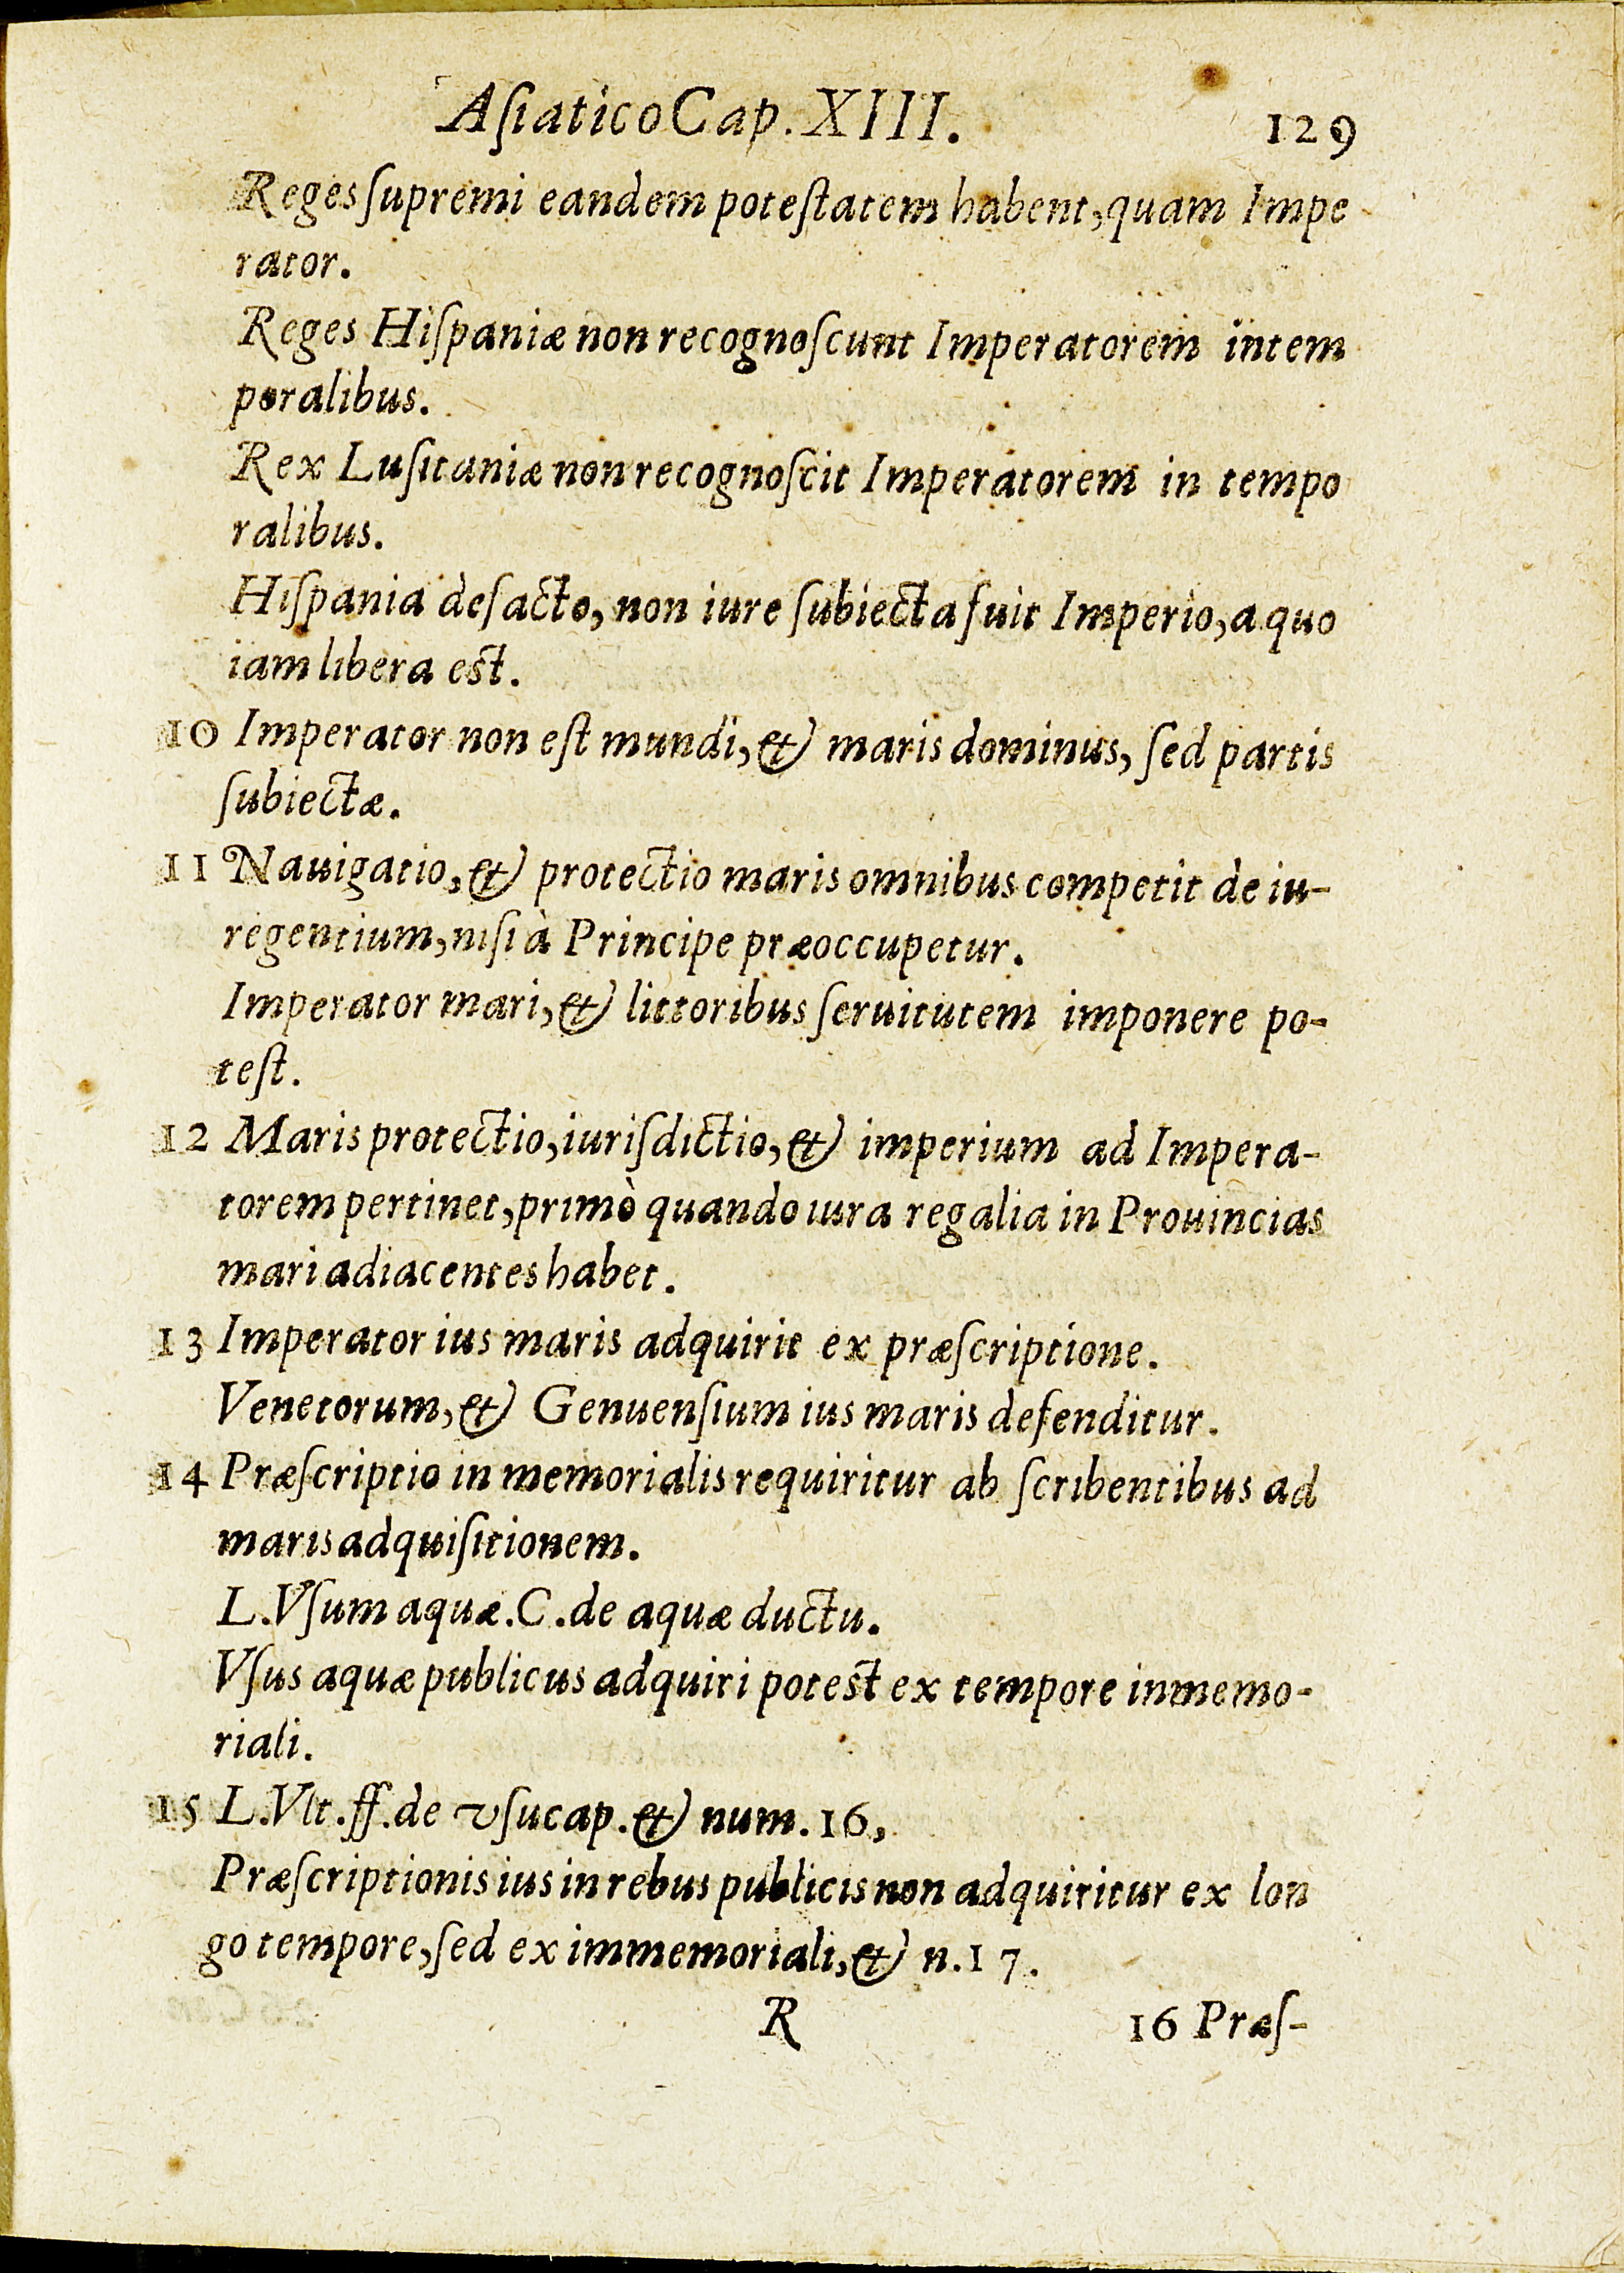 Aſiatico Cap. XIII. 129
Reges ſupremi eandem poteſtatem habent, quam Impe
rator.
Reges Hiſpaniæ non recognoſcunt Imperatorem intem
poralibus.
Rex Luſitaniæ non recognoſcit Imperatorem in tempo
ralibus.
Hiſpania deſacto, non iure ſubiecta fuit Imperio, a quo
iam libera est.
10 Imperator non eſt mundi, & maris dominus, ſed partis
ſubiectæ.
11 Nauigatio, & protectio maris omnibus competit de iu-
regentium, niſi à Principe præoccupetur.
Imperator mari, & littoribus ſeruitutem imponere po-
teſt.
12 Maris protectio, iuriſdictio, & imperium ad Impera-
torem pertinet, primò quando iura regalia in Prouincias
mari adiacentes habet.
13 Imperator ius maris adquirit ex præſcriptione.
Venetorum, & Genuenſium ius maris defenditur.
14 Præſcriptio in memorialis requiritur ab ſcribentibus ad
maris adquiſitionem.
L. Vſum aquæ. C. de aquæ ductu.
Vſus aquæ publicus adquiri potest ex tempore inmemo-
riali.
15 L. Vlt. ff. de vſucap. & num. 16,
Præſcriptionis ius in rebus publicis non adquiritur ex lon
go tempore, ſed ex immemoriali, & n. 17.
R 16 Præſ-